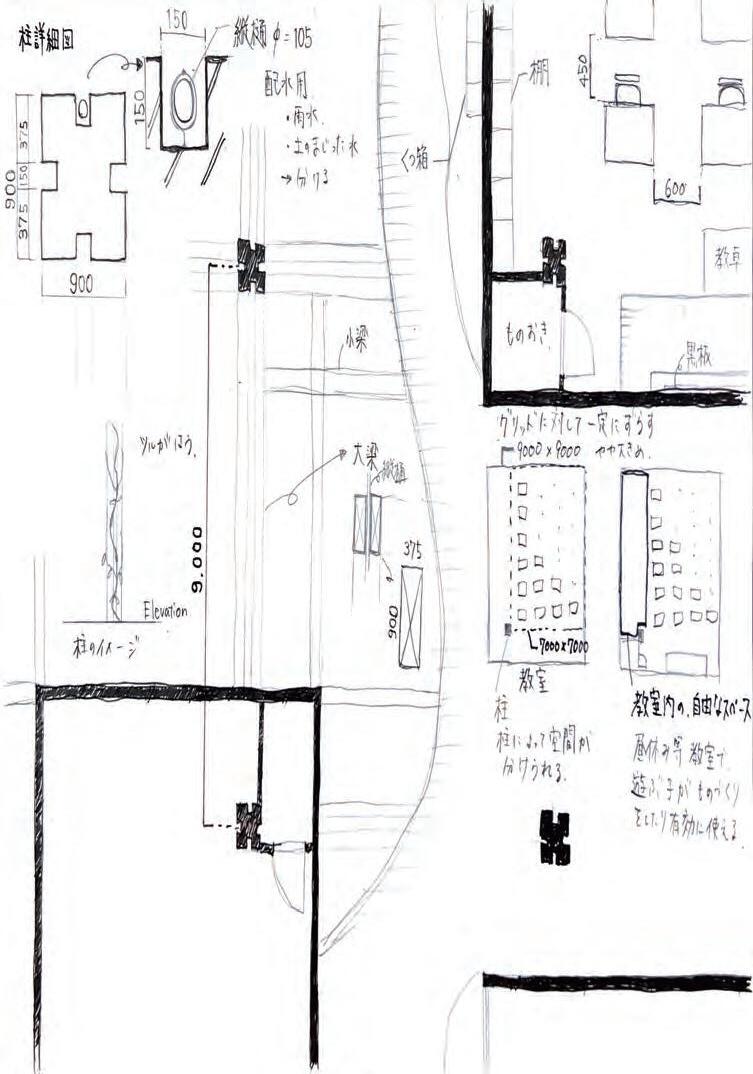 柱詳細図
150
縦樋 φ=105
150
配水用
・雨水
・土のまじった水
→分ける
375
150
375
900
900
棚
くつ箱
450
600
教卓
ものおき
黒板
小梁
ツルがはう。
大梁
縦樋
9.000
375
900
Elevation
柱のイメージ
グリッドに対して一定にずらす
9000×9000 やや大きめ。
7000×7000
教室
柱
柱によって空間が
分けられる。
教室内の、自由なスペース
昼休み等 教室で
遊ぶ子がものづくり
をしたり有効に使える。